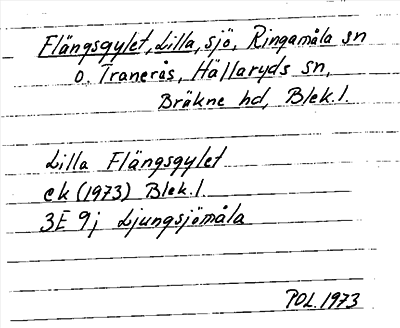 Flängsgylet, Lilla, sjö, Ringamåla sn
o. Tranerås, Hällaryds sn,
Bräkne hd, Blek.l.
Lilla Flängsgylet
ek (1973) Blek.l.
3E 9j Ljungsjömåla
POL. 1973